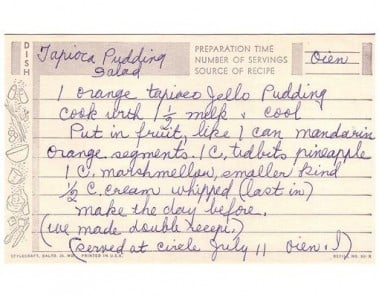 DISH
Tapioca Pudding
Salad
PREPARATION TIME
NUMBER OF SERVINGS
SOURCE OF RECIPE
Oien
1 orange tapioco Jello Pudding
cook with 1 1/2 milk & cool
Put in fruit, like 1 can mandarin
orange segments. 1 C. tidbits pineapple
1 C. marshmellow, smaller kind
1/2 C. cream whipped (last in)
make the day before.
(We made double receipt.)
(served at circle July 11 Oien. I)
STYLECRAFT, BALTO. 30, MD. PRINTED IN U.S.A.
REFILL NO.